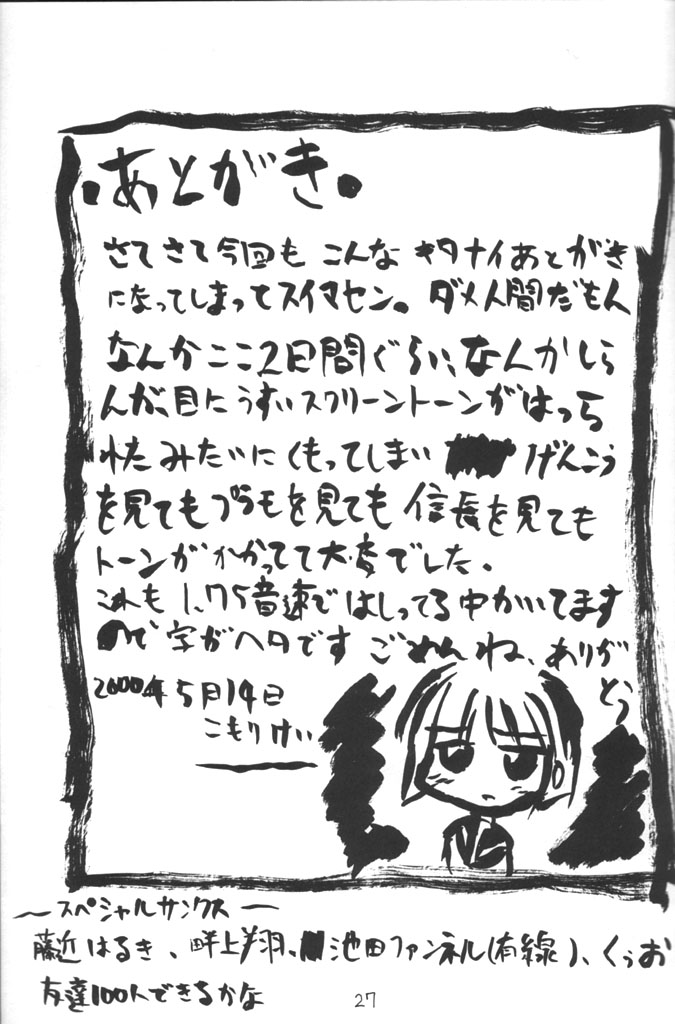 ・あとがき。
さてさて今回も こんな キタナイあとがき
になってしまってスイマセン。 ダメ人間だもん
なんかここ2日間ぐらい、なんかしら
んが、目にうすいスクリーントーンがはっら
れたみたいにくもってしまい げんこう
を見てもプラモを見ても 信長を見ても
トーンがかかってて大変でした。
これも 1.75音速で はしってる中かいてます
ので 字がヘタです ごめんね、ありが
とう
2000年5月14日
こもりけい
〜スペシャルサンクス〜
藤近はるき、畔上翔、池田ファンネル(有線)、くぅお
友達100人できるかな
27